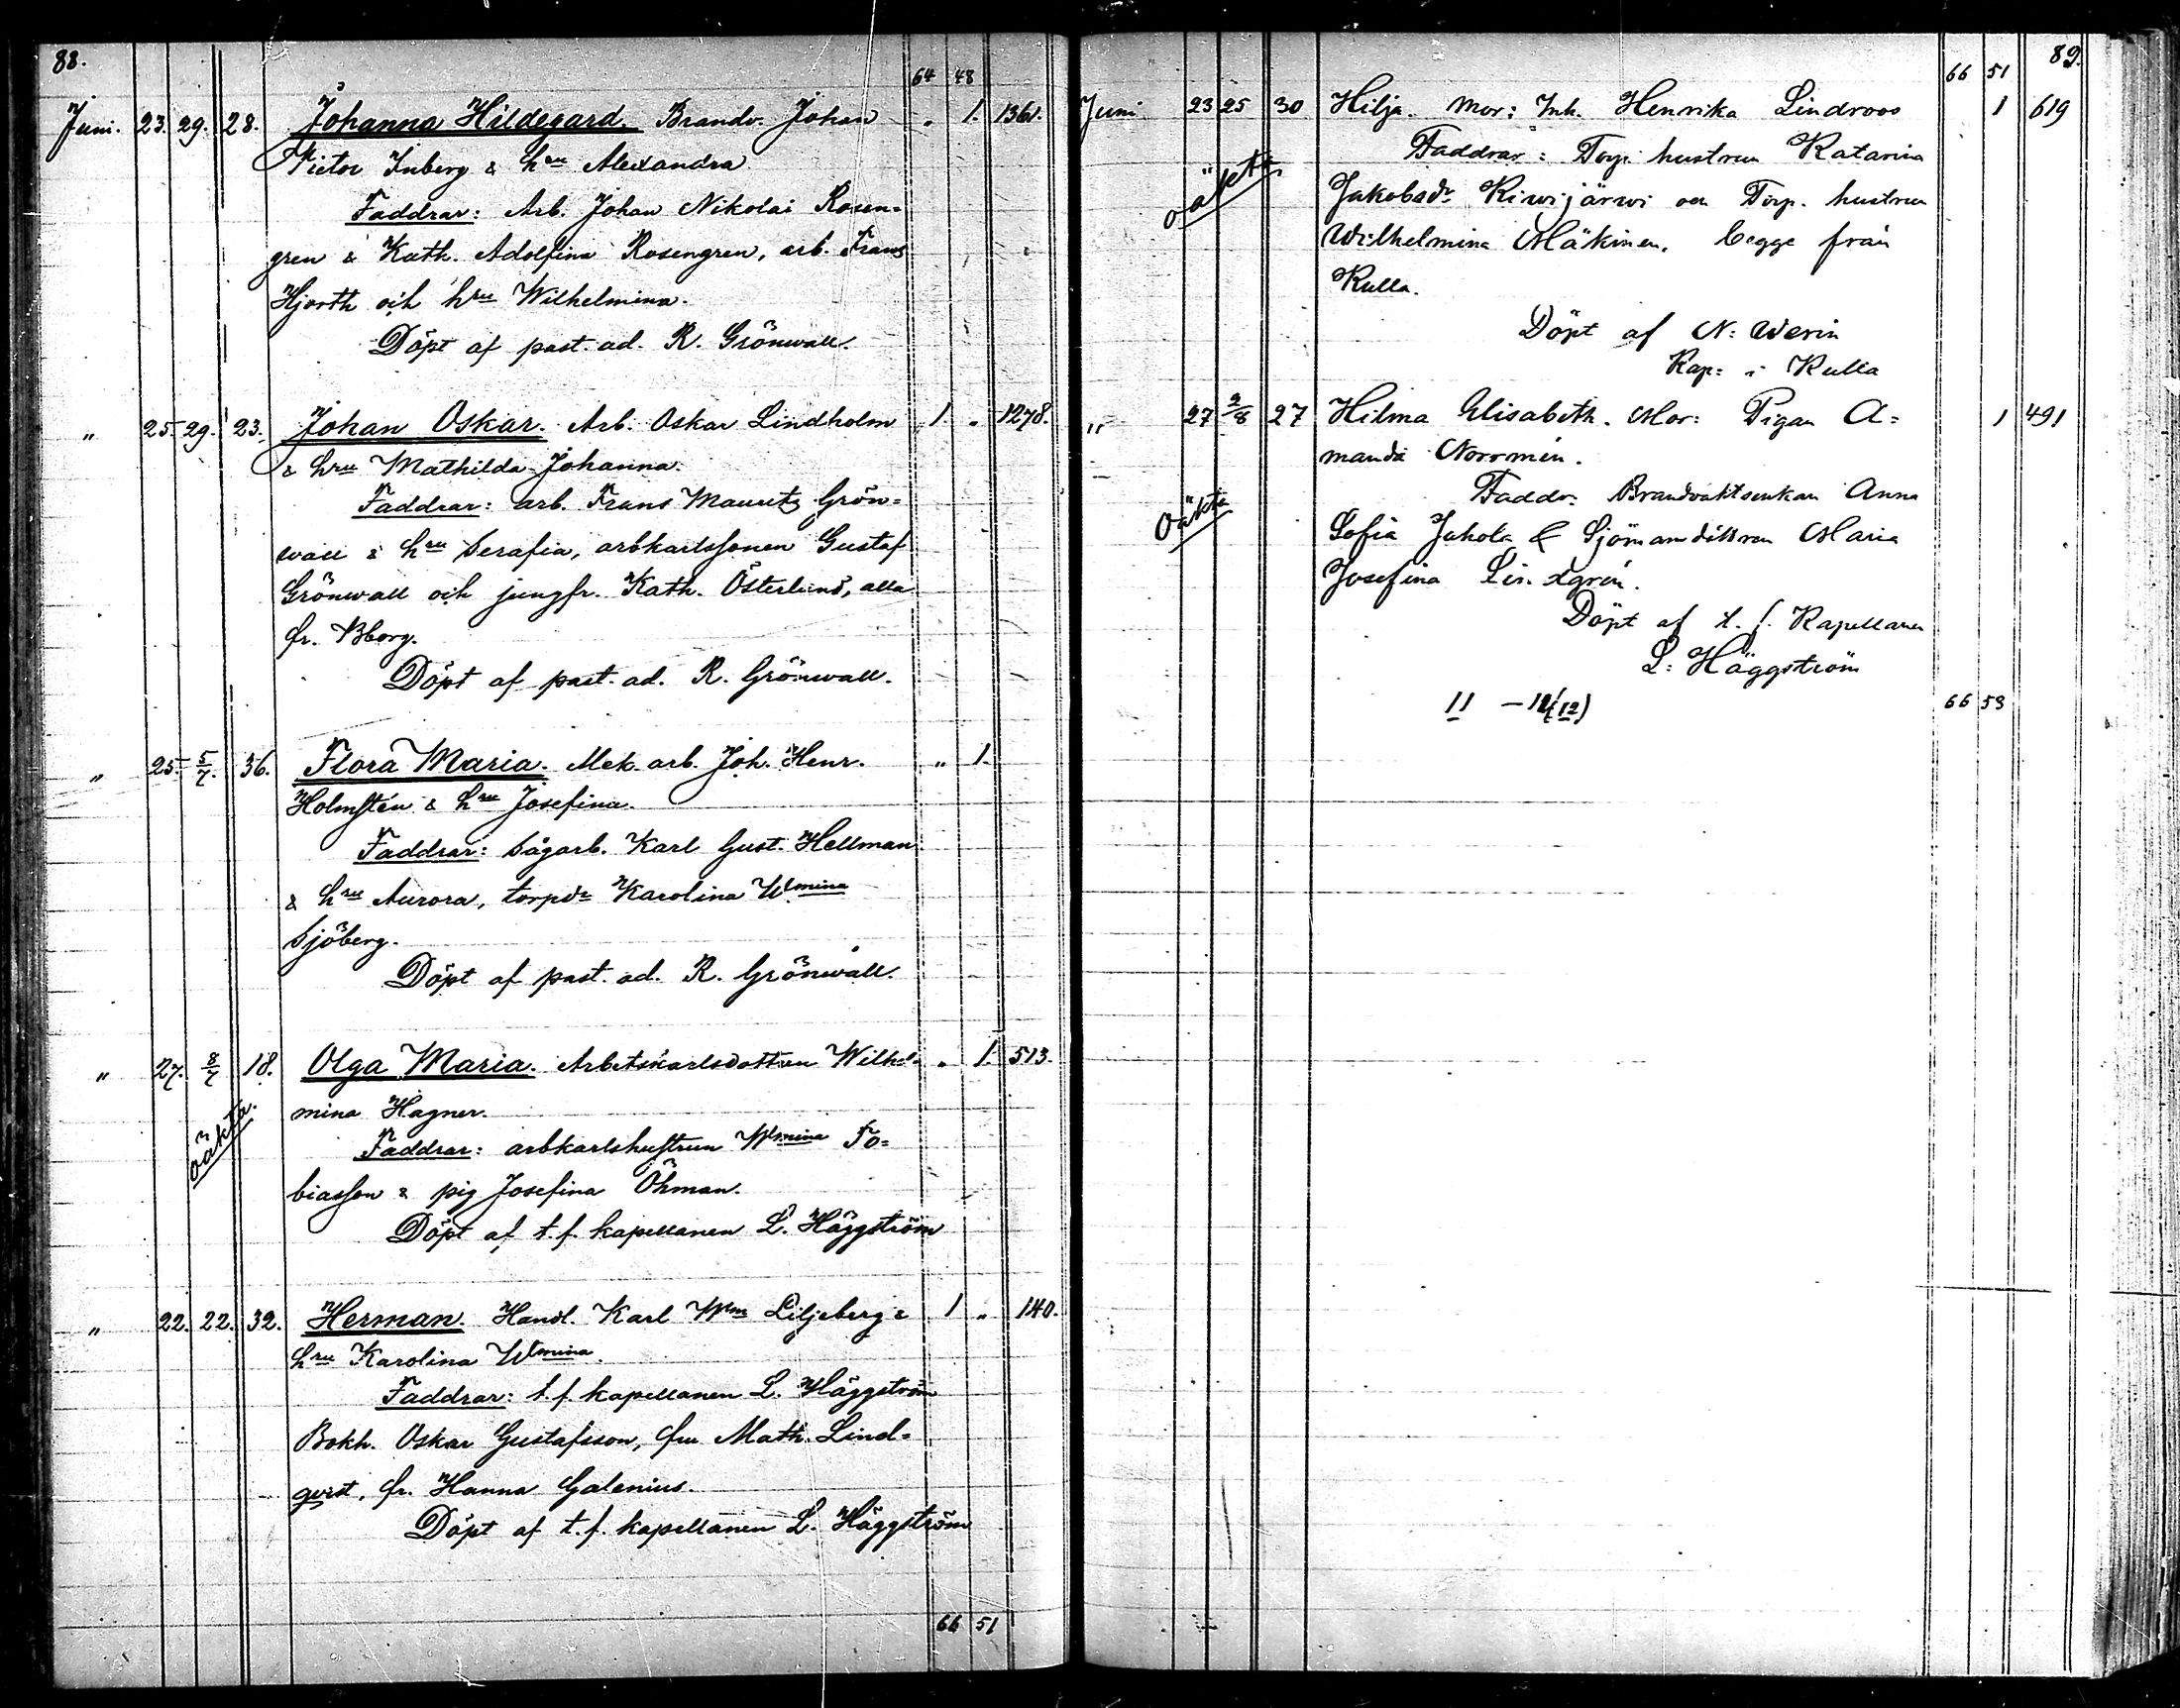 88.
64 48
Juni. 23. 29. 28. Johanna Hildegard. Brandv. Johan " 1. 1361.
Victor Inberg & hru Alexandra
Faddrar: Arb. Johan Nikolai Rosen=
gren & Kath. Adolfina Rosengren, arb. Frans
Hjorth och hru Wilhelmina.
Döpt af past. ad. R. Grönwall.
" 25. 29. 23. Johan Oskar. Arb. Oskar Lindholm 1. " 1278.
& hru Mathilda Johanna.
Faddrar: arb. Frans Mauritz Grön=
wall & hru Serafia, arbkarlssonen Gustaf
Grönwall och jungfr. Kath. Österlund, alla
fr. Bborg.
Döpt af past. ad. R. Grönwall.
" 25. 5/7. 36. Flora Maria. Mek. arb. Joh. Henr. " 1.
Holmstén & hru Josefina.
Faddrar: Sågarb. Karl Gust. Hellman
& hru Aurora, torpdr Karolina Wmina
Sjöberg.
Döpt af past. ad. R. Grönwall.
" 27. 8/7 18. Olga Maria. Arbetskarlsdottren Wilhel= " 1. 513.
oäkta. mina Hagner.
Faddrar: arbkarlshustrun Wmina To=
biasson & pig Josefina Öhman.
Döpt af t.f. kapellanen L. Häggström
" 22. 22. 32. Herman. Handl. Karl Wm Liljeberg & 1 " 140.
hru Karolina Wmina.
Faddrar: t.f. kapellanen L. Häggström
Bokh. Oskar Gustafsson, fru Math. Lind=
qvist, fr. Hanna Galenius.
Döpt af t.f. kapellanen L. Häggström
66 51
89.
66 51
Juni 23 25 30 Hilja. Mor: Inh. Henrika Lindroos 1 619
oäkta Faddrar: Torp. hustrun Katarina
Jakobsdr Kiwijärwi och Torp. hustrun
Wilhelmina Mäkinen, begge från
Kulla.
Döpt af N. Werin
Kap: i Kulla
" 27 2/8 27 Hilma Elisabeth. Mor: Pigan A= 1 491
manda Norrmén.
oäkta Faddr. Brandvaktsenkan Anna
Sofia Jakola & Sjömansdottren Maria
Josefina Lindgrén.
Döpt af t. f. Kapellanen
L: Häggström
66 53